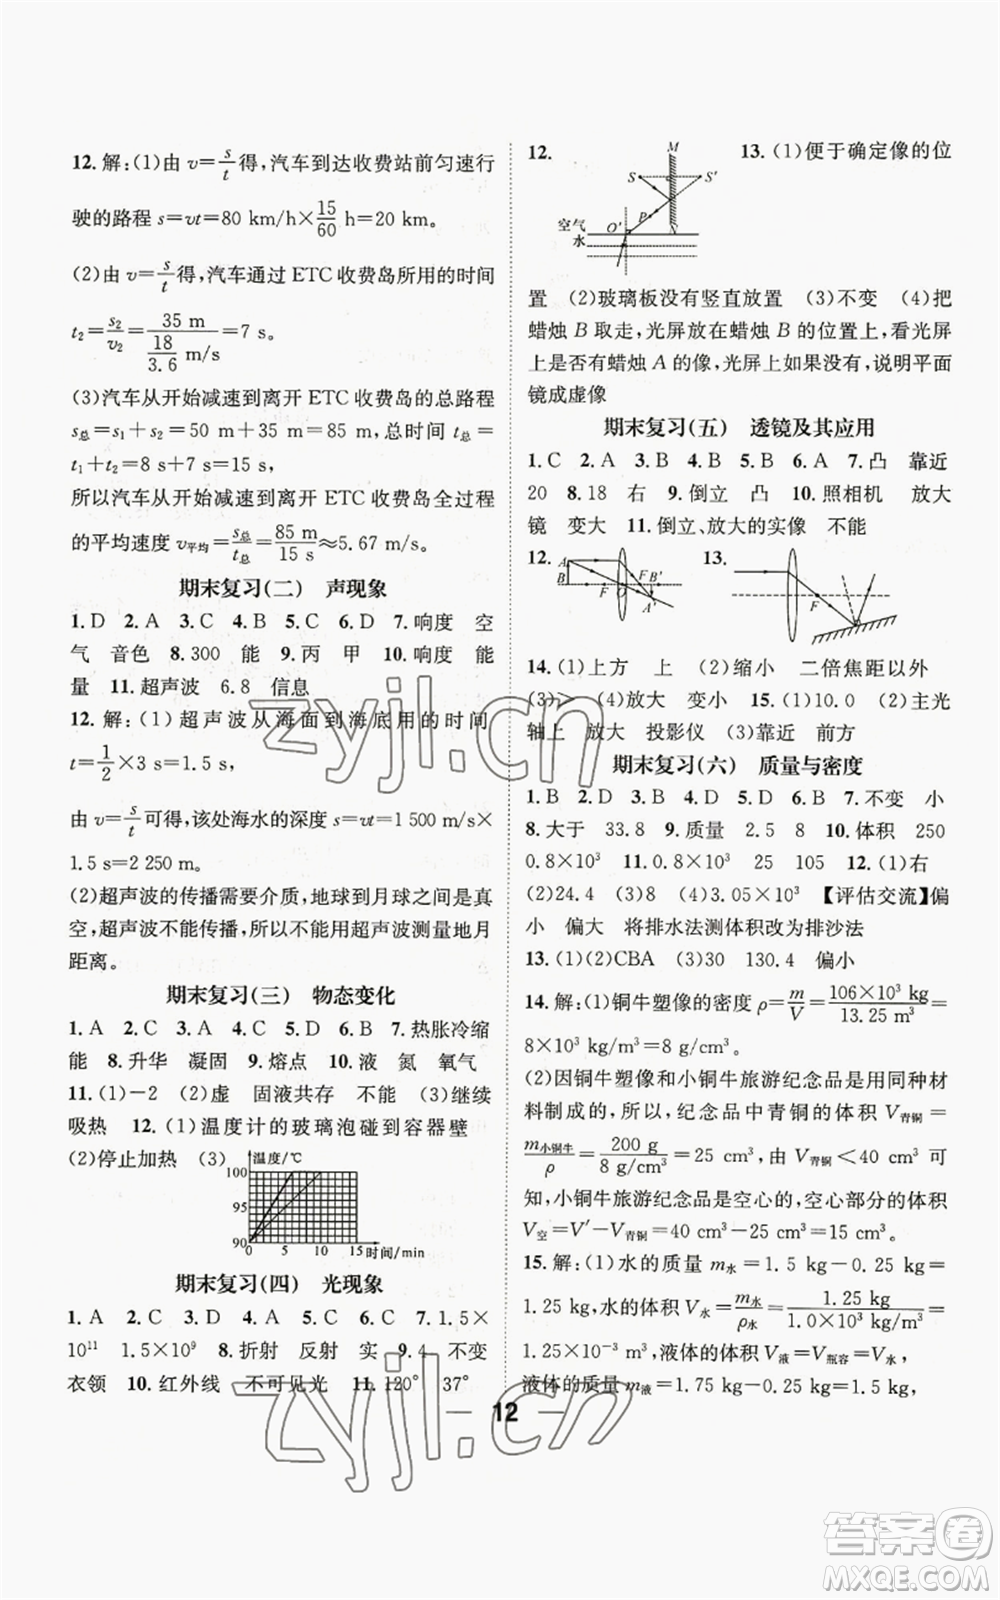 12. 解:(1)由 v=s/t 得,汽车到达收费站前匀速行
驶的路程 s=vt=80 km/h×15/60 h=20 km。
(2)由 v=s/t 得,汽车通过 ETC 收费岛所用的时间
t₂=s₂/v₂=35 m/(18/3.6 m/s)=7 s。
(3)汽车从开始减速到离开 ETC 收费岛的总路程
s总=s₁+s₂=50 m+35 m=85 m,总时间 t总=
t₁+t₂=8 s+7 s=15 s,
所以汽车从开始减速到离开 ETC 收费岛全过程
的平均速度 v平均=s总/t总=85 m/15 s≈5.67 m/s。
期末复习(二) 声现象
1. D 2. A 3. C 4. B 5. C 6. D 7. 响度 空
气 音色 8. 300 能 9. 丙 甲 10. 响度 能
量 11. 超声波 6.8 信息
12. 解:(1)超声波从海面到海底用的时间
t=1/2×3 s=1.5 s,
由 v=s/t 可得,该处海水的深度 s=vt=1 500 m/s×
1.5 s=2 250 m。
(2)超声波的传播需要介质,地球到月球之间存在真
空,超声波不能传播,所以不能用超声波测量地月
距离。
期末复习(三) 物态变化
1. A 2. C 3. A 4. C 5. D 6. B 7. 热胀冷缩
能 8. 升华 凝固 9. 熔点 10. 液 氮 氧气
11. (1)-2 (2)虚 固液共存 不能 (3)继续
吸热 12. (1)温度计的玻璃泡碰到容器壁
(2)停止加热 (3)
温度/℃
100
95
90
0 5 10 15 时间/min
期末复习(四) 光现象
1. A 2. C 3. D 4. A 5. C 6. C 7. 1.5×
10¹¹ 1.5×10⁹ 8. 折射 反射 实 9. 4 不变
衣领 10. 红外线 不可见光 11. 120° 37°
12.
M
S S′
P
空气 O′ N
水
13. (1)便于确定像的位
置 (2)玻璃板没有竖直放置 (3)不变 (4)把
蜡烛 B 取走,光屏放在蜡烛 B 的位置上,看光屏
上是否有蜡烛 A 的像,光屏上如果没有,说明平面
镜成虚像
期末复习(五) 透镜及其应用
1. C 2. A 3. B 4. B 5. B 6. A 7. 凸 靠近
20 8. 18 右 9. 倒立 凸 10. 照相机 放大
镜 变大 11. 倒立、放大的实像 不能
12.
A
B F O F B′
A′
13.
F
14. (1)上方 上 (2)缩小 二倍焦距以外
(3)> (4)放大 变小 15. (1)10.0 (2)主光
轴上 放大 投影仪 (3)靠近 前方
期末复习(六) 质量与密度
1. B 2. D 3. D 4. D 5. D 6. B 7. 不变 小
8. 大于 33.8 9. 质量 2.5 8 10. 体积 250
0.8×10³ 11. 0.8×10³ 25 105 12. (1)右
(2)24.4 (3)8 (4)3.05×10³ 【评估交流】偏
小 偏大 将排水法测体积改为排沙法
13. (1)C (2)CBA (3)30 130.4 偏小
14. 解:(1)铜牛塑像的密度 ρ=m/V=106×10³ kg/13.25 m³=
8×10³ kg/m³。
(2)因铜牛塑像和小铜牛旅游纪念品是用同种材
料制成的,所以,纪念品中青铜的体积 V青铜=
m小铜牛/ρ=200 g/8 g/cm³=25 cm³,由 V青铜<40 cm³ 可
知,小铜牛旅游纪念品是空心的,空心部分的体积
V空=V′-V青铜=40 cm³-25 cm³=15 cm³。
15. 解:(1)水的质量 m水=1.5 kg-0.25 kg=
1.25 kg,水的体积 V水=m水/ρ水=1.25 kg/1.0×10³ kg/m³=
1.25×10⁻³ m³,液体的体积 V液=V瓶容=V水,
液体的质量 m液=1.75 kg-0.25 kg=1.5 kg,
12
zyjl.cn
zyjl.cn
答案圈
MXQE.COM